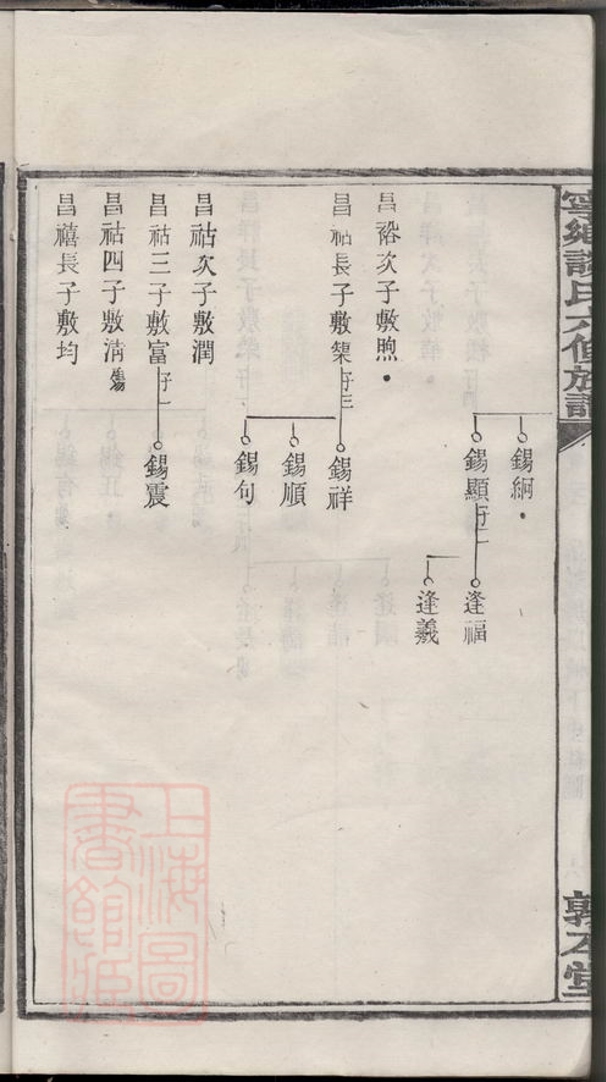 寧鄉談氏六修族譜
敦本堂
錫絅
錫顯子二
逢福
逢羲
昌裕次子敷煦
昌祜長子敷榘子三
錫祥
錫順
錫句
昌祜次子敷潤
昌祜三子敷富子一
錫震
昌祜四子敷淸殤
昌禧長子敷均
上海圖
書館藏